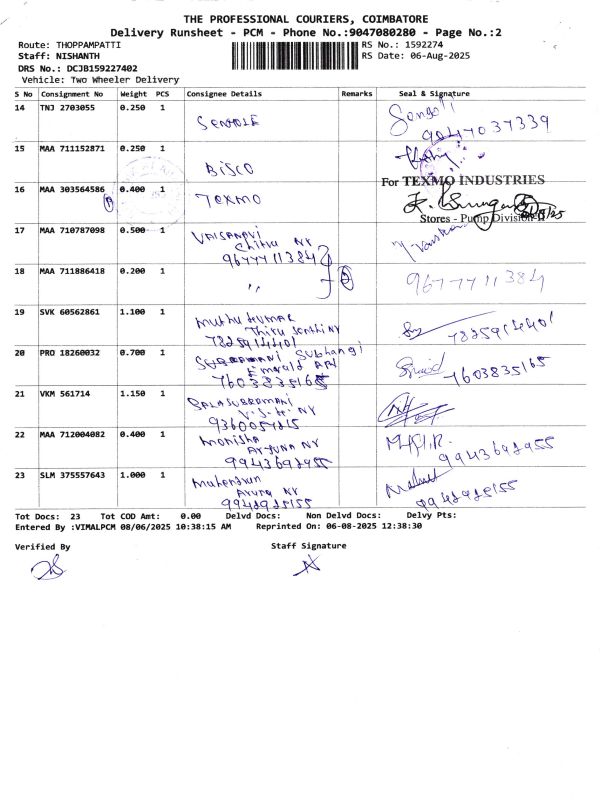 THE PROFESSIONAL COURIERS, COIMBATORE
Delivery Runsheet - PCM - Phone No.:9047080280 - Page No.:2
Route: THOPPAMPATTI RS No.: 1592274
Staff: NISHANTH RS Date: 06-Aug-2025
DRS No.: DCJB159227402
Vehicle: Two Wheeler Delivery
S No Consignment No Weight PCS Consignee Details Remarks Seal & Signature
14 TNJ 2703055 0.250 1
9047037339
15 MAA 711152871 0.250 1 BISCO
For TEXMO INDUSTRIES
16 MAA 303564586 0.400 1 TEXMO
Stores - Pump Division-II
17 MAA 710787098 0.500 1 VAISANAVI
Chitra NY
9677711384
18 MAA 711886418 0.200 1 " 9677711384
19 SVK 60562861 1.100 1 Muthu kumar
Thiru Senthi NY
7825914401 7825914401
20 PRO 18260032 0.700 1 Subramani Subhangi
Emerald APT
7603835165 7603835165
21 VKM 561714 1.150 1 BALASUBRAMANI
NY
22 MAA 712004082 0.400 1 Monisha
Arjuna NY
9943692955 9943692955
23 SLM 375557643 1.000 1 Mahendran
Arjuna NY
Tot Docs: 23 Tot COD Amt: 0.00 Delvd Docs: Non Delvd Docs: Delvy Pts:
Entered By :VIMALPCM 08/06/2025 10:38:15 AM Reprinted On: 06-08-2025 12:38:30
Verified By Staff Signature